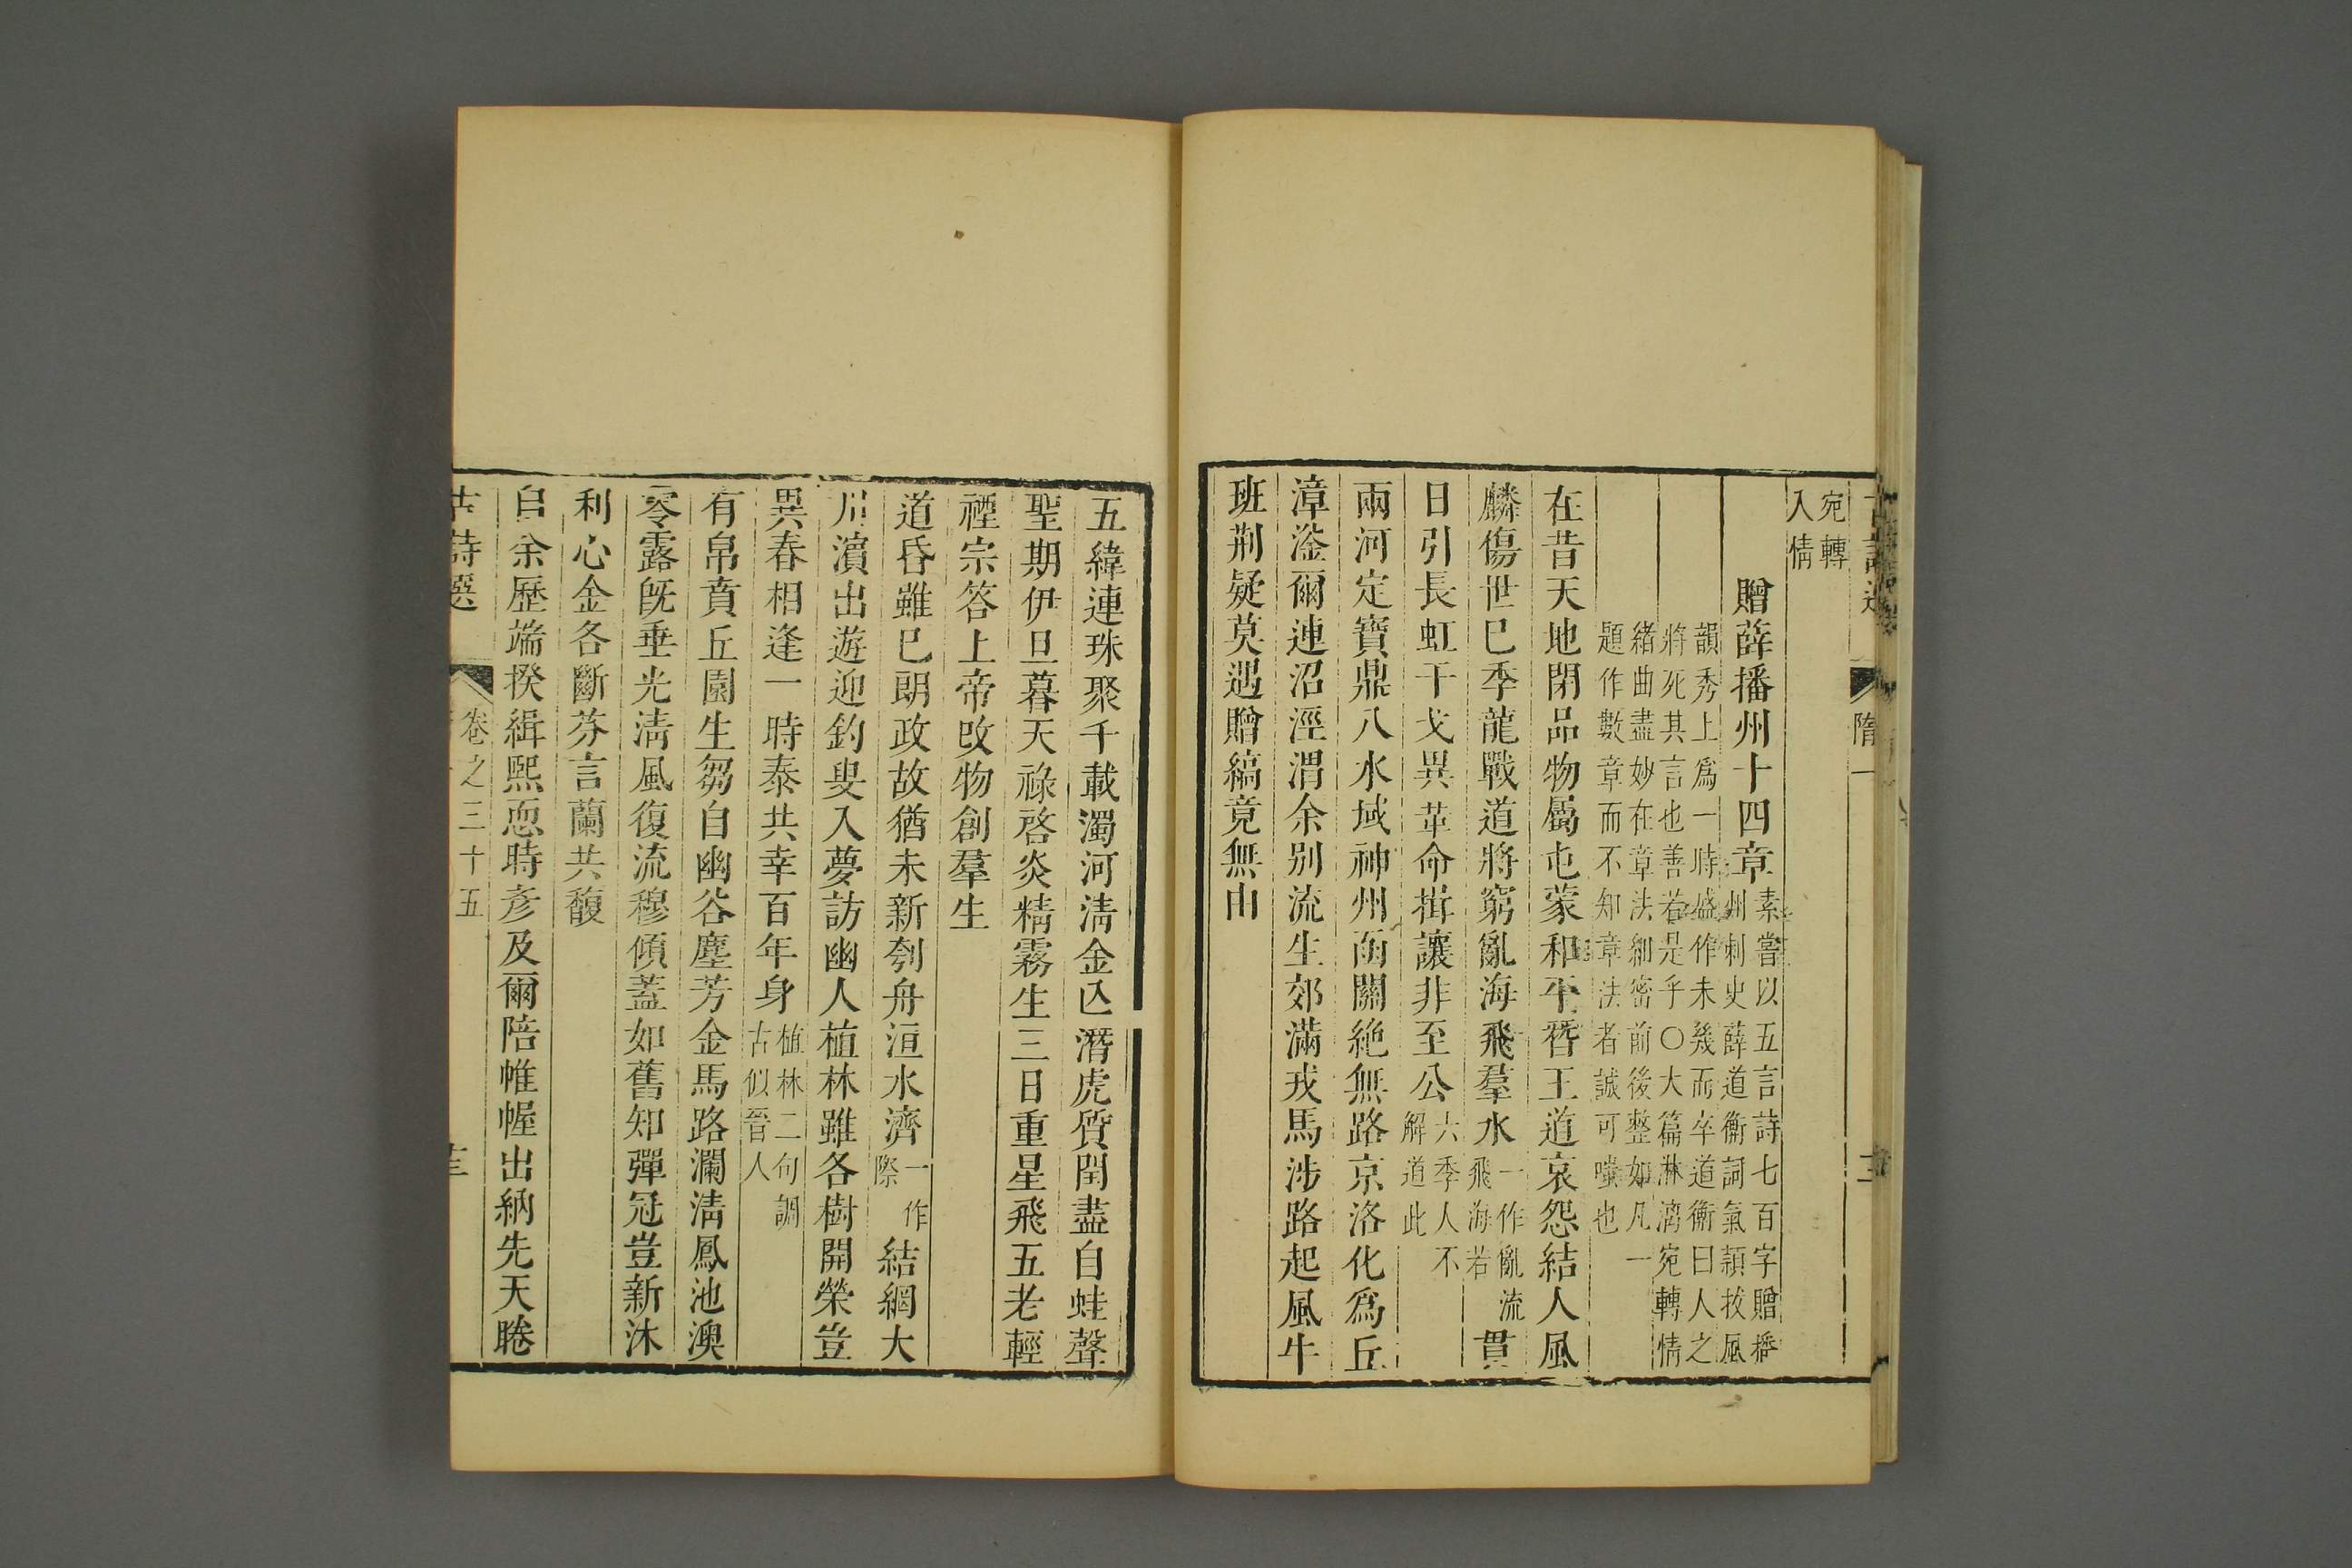 宛轉
入情
贈薛播州十四章素嘗以五言詩七百字贈播
州刺史薛道衡詞氣頴拔風
韻秀上爲一時盛作未幾而卒道衡曰人之
將死其言也善若是乎〇大篇淋漓宛轉情
緒曲盡妙在章法細密前後整如凡一
題作數章而不知章法者誠可嗤也
在昔天地閉品物屬屯蒙和平替王道哀怨結人風
麟傷世已季龍戰道將窮亂海飛羣水一作亂流飛海若貫
日引長虹干戈異革命揖讓非至公六季人不解道此
兩河定寶鼎八水域神州函關絶無路京洛化爲丘
漳滏爾連沼涇渭余别流生郊滿戎馬涉路起風牛
班荆疑莫遇贈縞竟無由
隋一
五緯連珠聚千載濁河淸金亾潛虎質閏盡自蛙聲
聖期伊旦暮天祿啓炎精霧生三日重星飛五老輕
禋宗答上帝改物創羣生
道昏雖已朗政故猶未新刳舟洹水濟一作際結網大
川濵出遊迎釣叟入夢訪幽人植林雖各樹開榮豈
異春相逢一時泰共幸百年身植林二句調古似晉人
有帛賁丘園生芻自幽谷塵芳金馬路瀾淸鳳池澳
零露旣垂光淸風復流穆傾蓋如舊知彈冠豈新沐
利心金各斷芬言蘭共馥
自余歷端揆緝熙恧時彥及爾陪帷幄出納先天睠
古詩選
卷之三十五